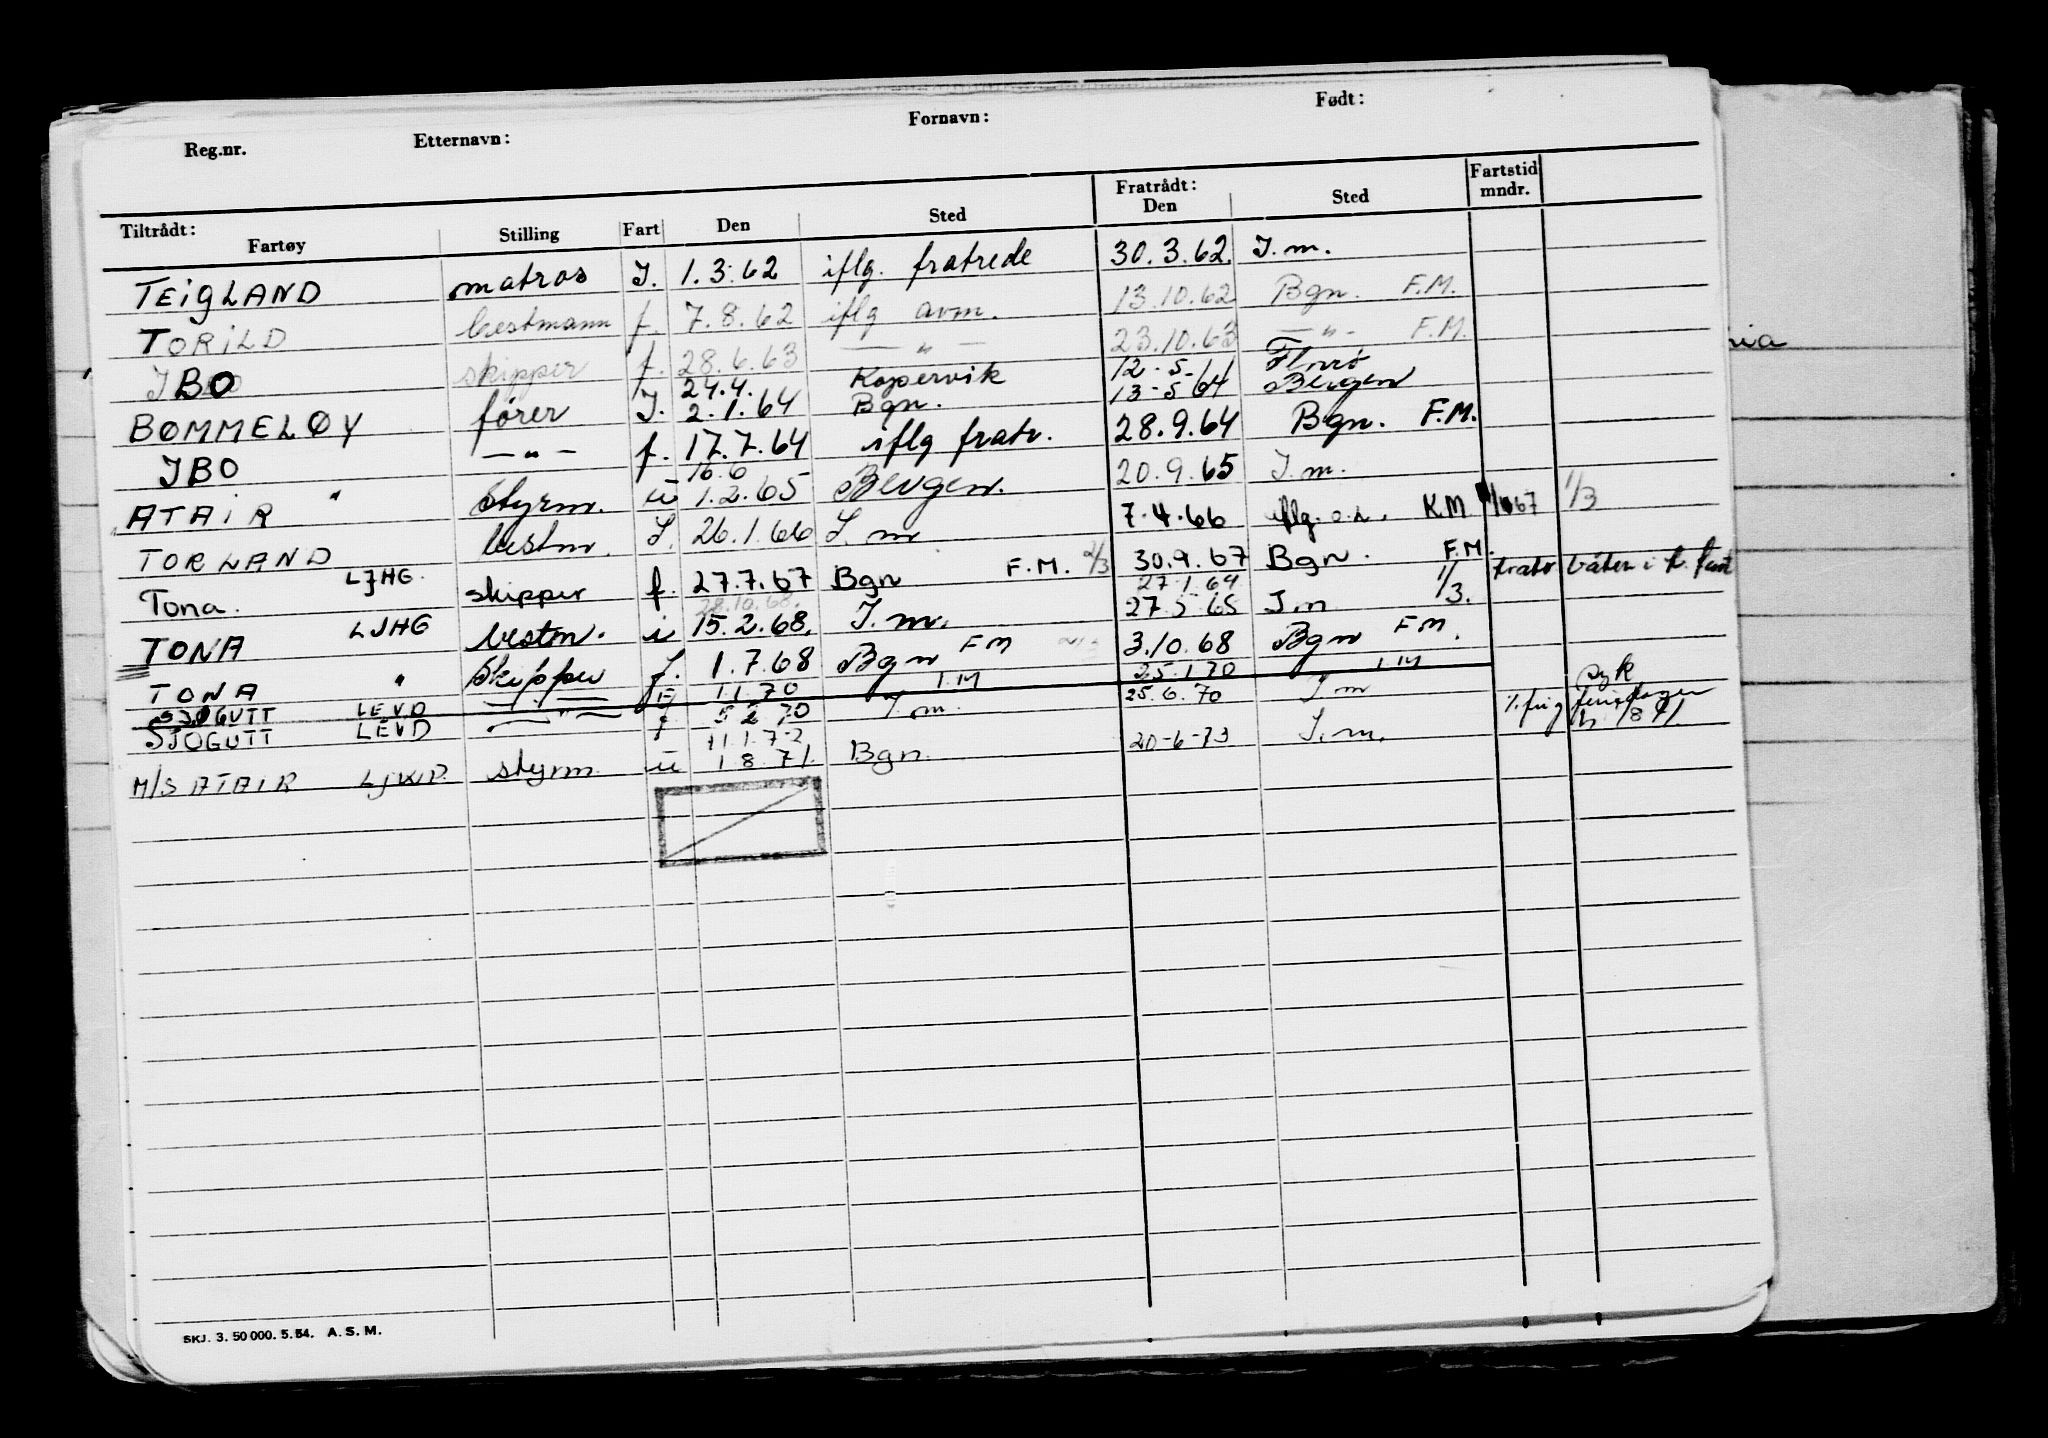 Reg.nr. Etternavn: Fornavn: Født:
Tiltrådt: Fratrådt: Fartstid
Fartøy Stilling Fart Den Sted Den Sted mndr.
TEIGLAND matros I. 1.3.62 iflg. fratrede 30.3.62 I.m.
TORILD bestmann f. 7.8.62 iflg avm. 13.10.62 Bgn. F.M.
IBO skipper f. 28.6.63 — " — 23.10.63 — " - F.M.
24.4. Kopervik 12-5- Florø
BØMMELØY fører I. 2.1.64 Bgn. 13-5-64 Bergen
IBO — " — f. 17.7.64 iflg fratr. 28.9.64 Bgn. F.M.
16.6
ATAIR " Styrm. u 1.2.65 Bergen. 20.9.65 I.m.
TORLAND bestm. I. 26.1.66 I.m 7.4.66 iflg. KM 67 1/3
Tona. LJHG. skipper f. 27.7.67 Bgn F.M. 2/3 30.9.67 Bgn. F.M. fratr båten i
28.10.68. 27.1.64 1/3.
TONA LJHG bestm. i 15.2.68. I.m. 27.5.65 I.m
TONA " Skipper f. 1.7.68 Bgn FM 3.10.68 Bgn FM.
SJØGUTT LEVD — 1.1.70 I.M 25.1.70 I.M
SJØGUTT LEVD — " — f 5 2 70 I.m 25.6.70 I.m feriedager
11.1.72
M/S ATAIR LJWP. styrm. u 1.8.71. Bgn. 20-6-73 I.m.
SKJ. 3. 50 000. 5. 54. A. S. M.